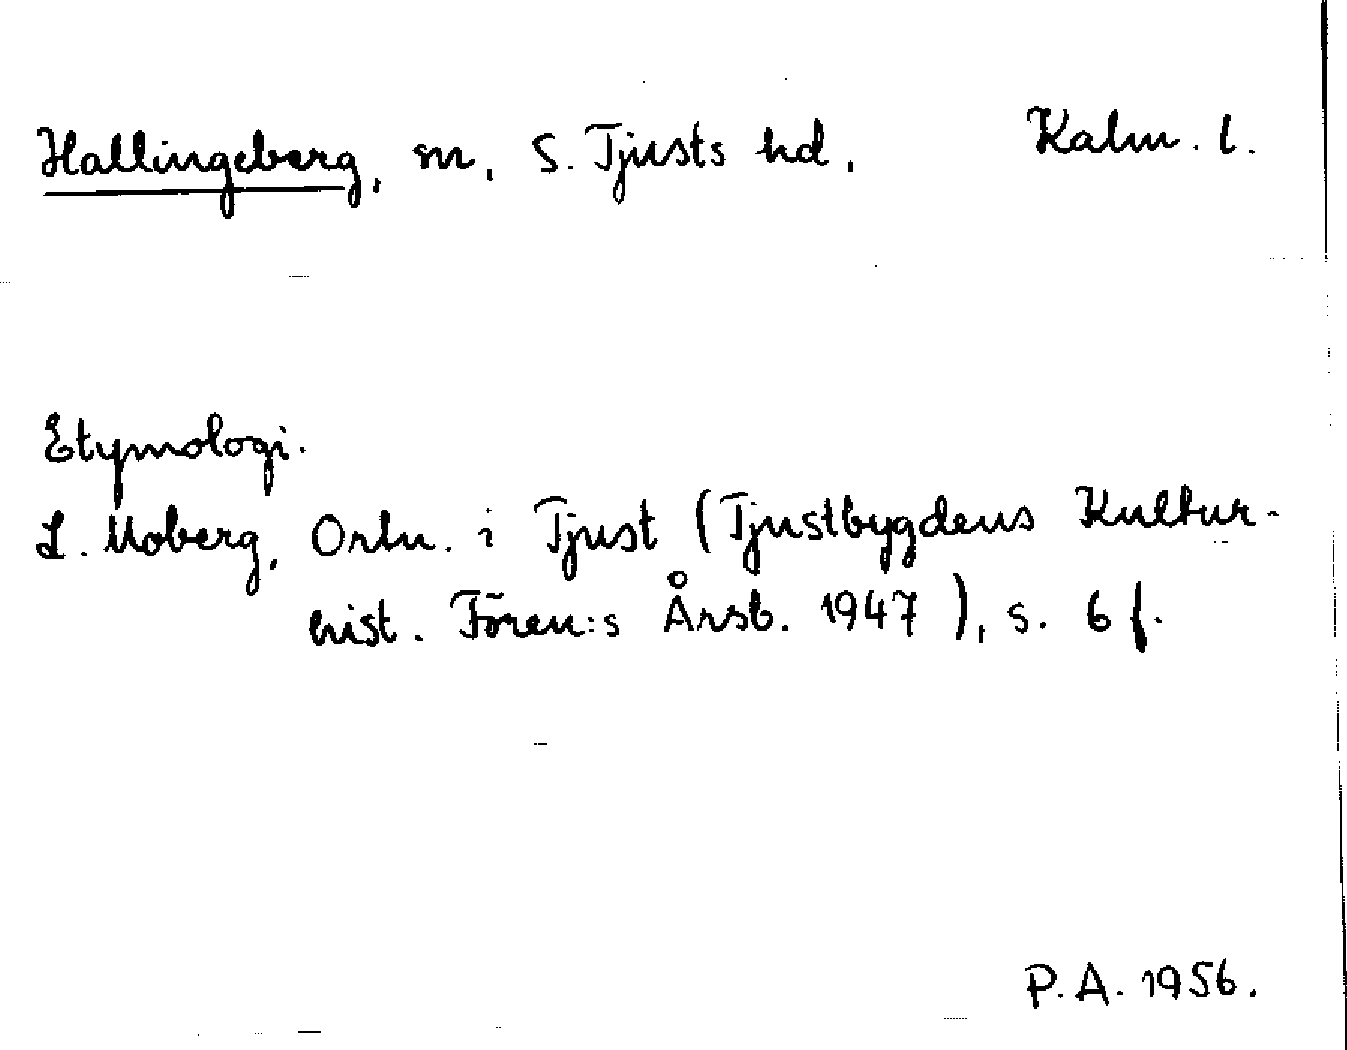 Hallingeberg, sn, S. Tjusts hd. Kalm. l.
Etymologi.
L. Moberg, Ortn. i Tjust (Tjustbygdens Kultur-
hist. Fören:s Årsb. 1947), s. 6 f.
P. A. 1956.